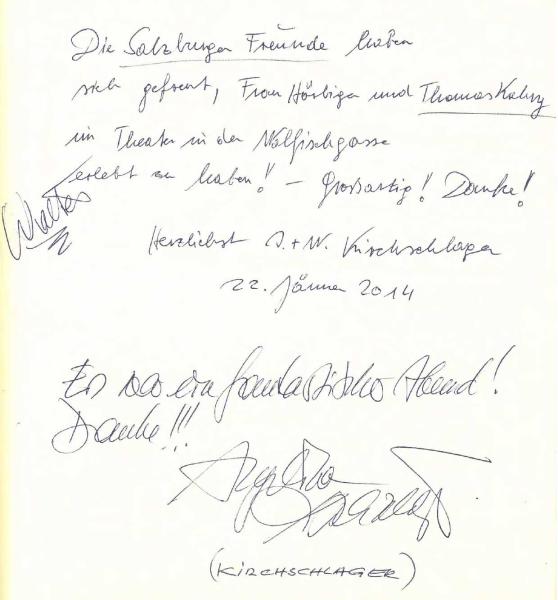 Die Salzburger Freunde haben
sich gefreut, Frau Hörbiger und Thomas
im Theater in der Walfischgasse
erlebt zu haben! – Großartig! Danke!
Walter
Herzlichst J. + W. Kirchschlager
22. Jänner 2014
Es war ein fantastischer Abend!
Danke!!!
Angelika
(KIRCHSCHLAGER)